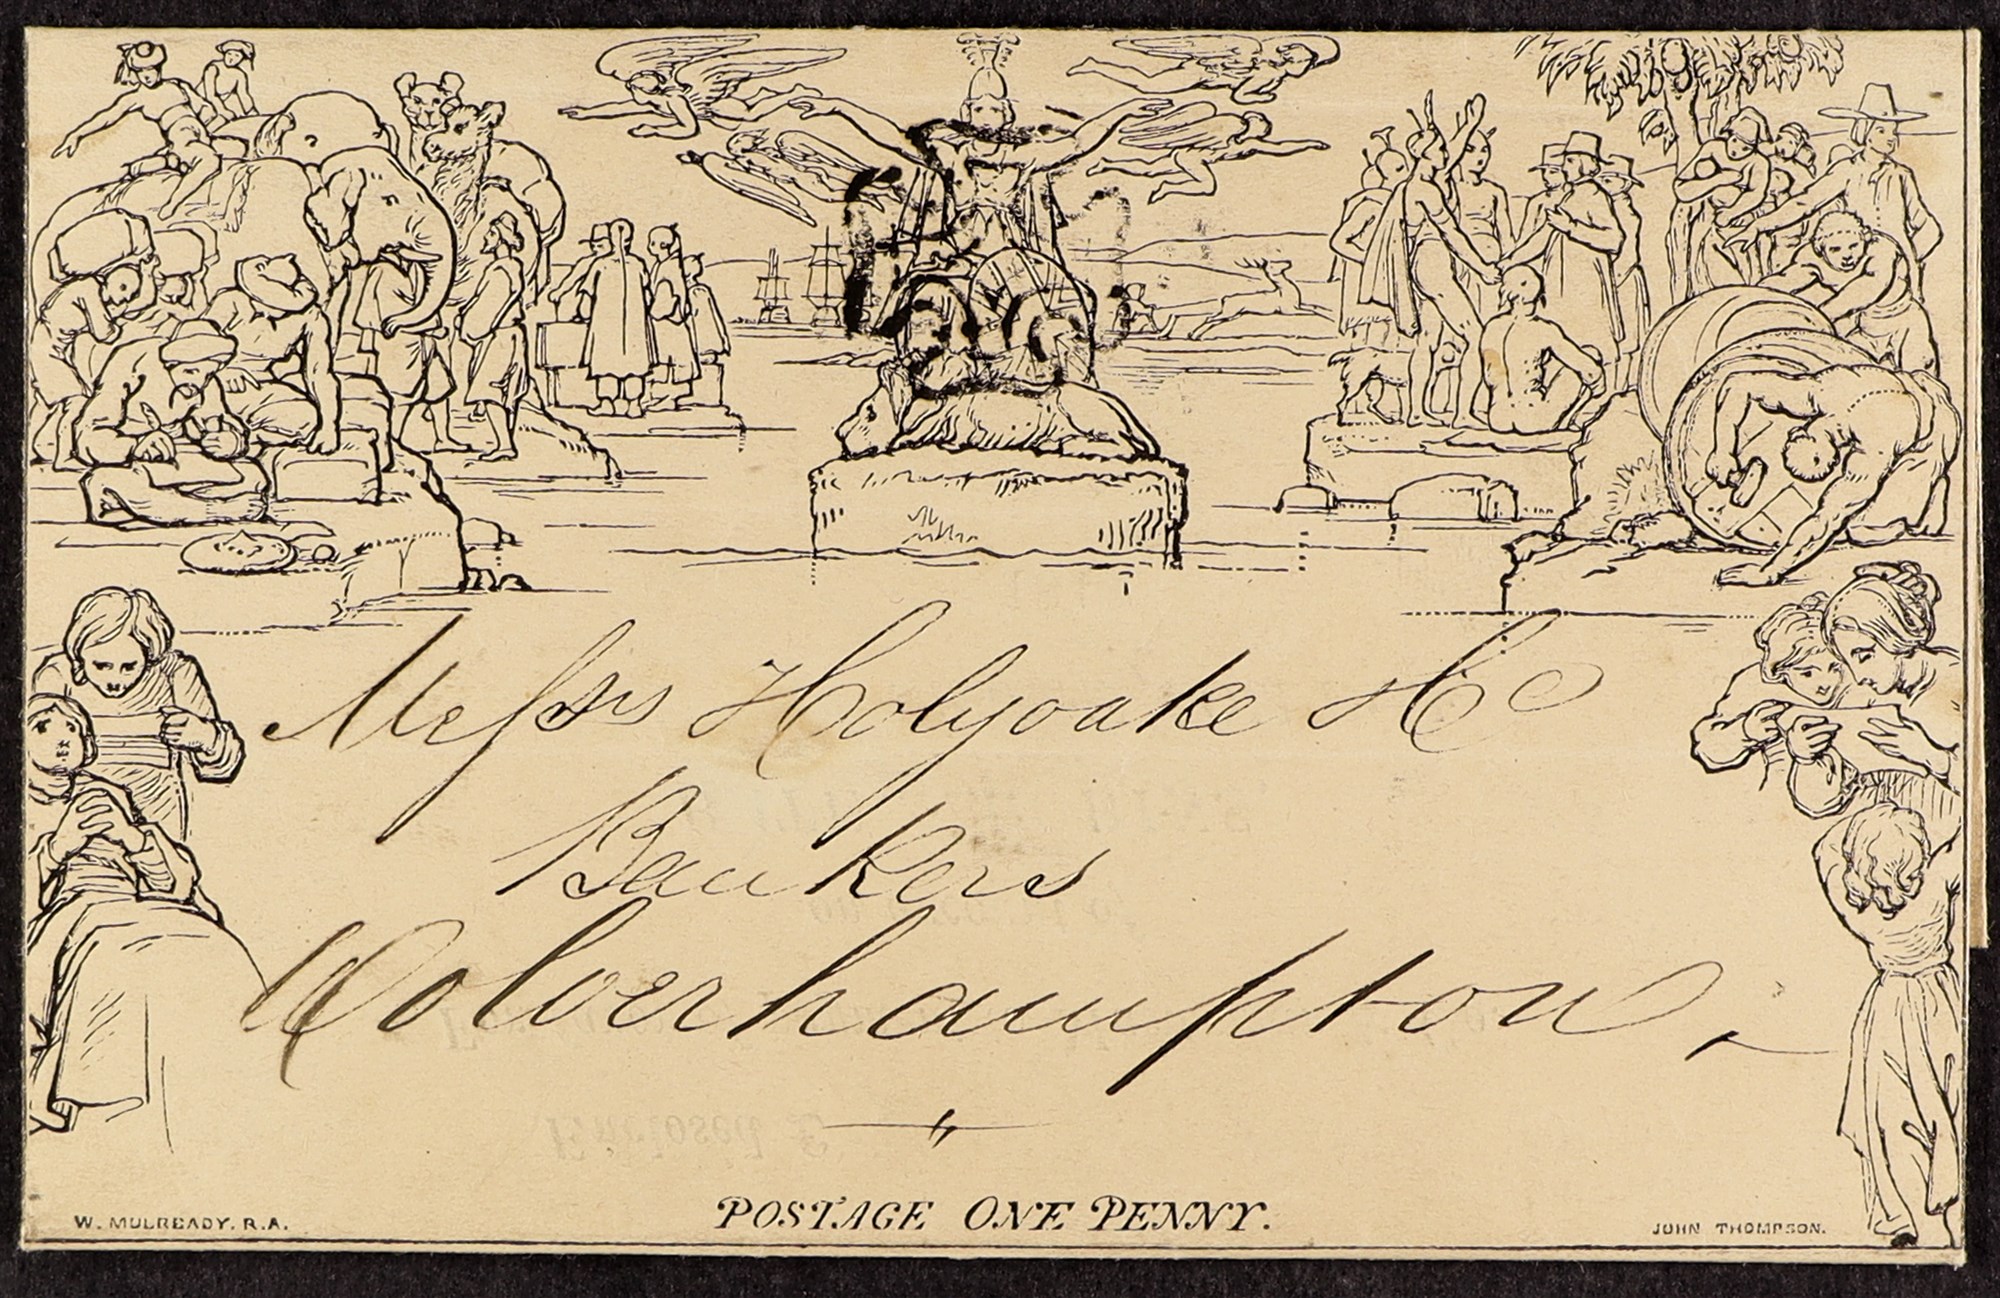 Messrs Holyoake & Co
Bankers
Wolverhampton
POSTAGE ONE PENNY.
W. MULREADY. R.A.
JOHN THOMPSON.